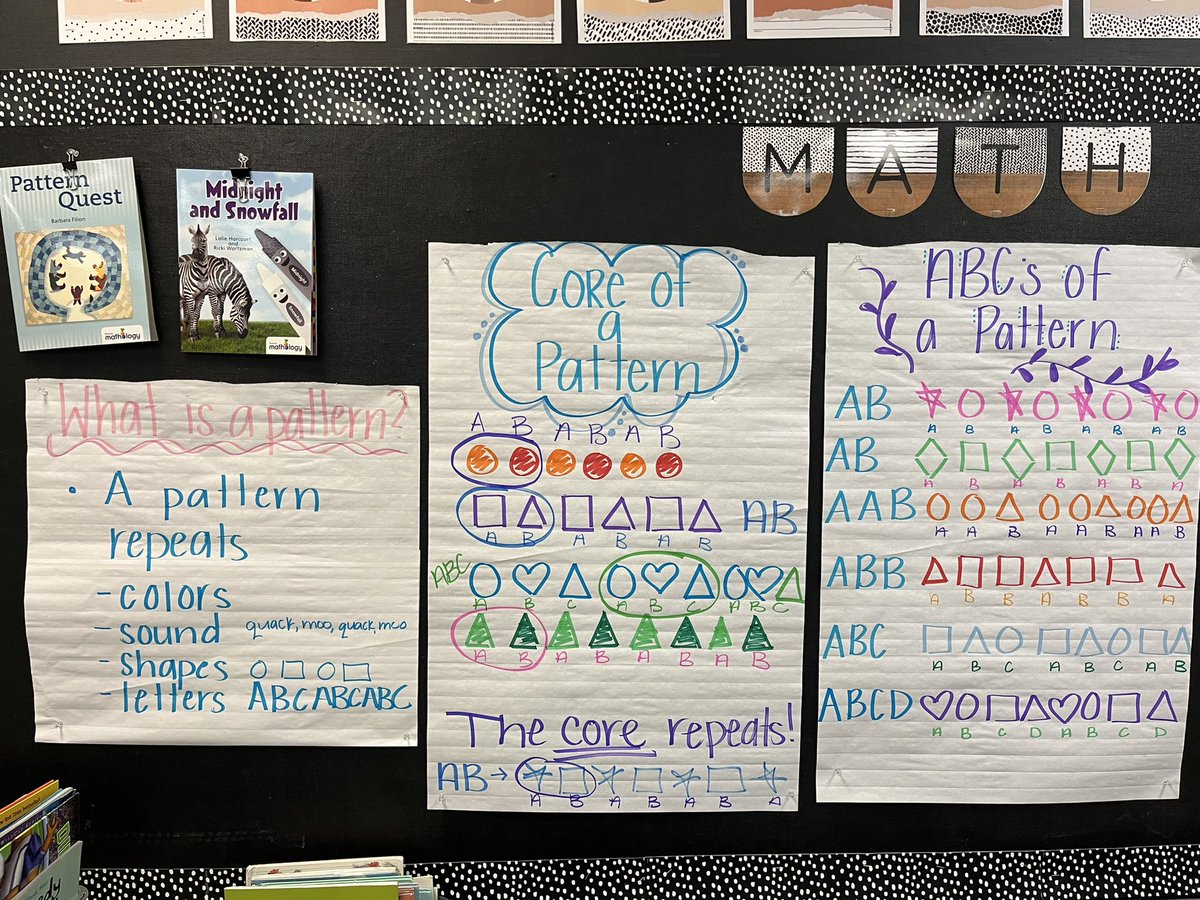 MATH
Pattern
Quest
Barbara Filion
mathology
Midnight
and Snowfall
Lalie Harcourt
and
Ricki Wortzman
mathology
What is a pattern?
• A pattern
repeats
- colors
- sound quack, moo, quack, moo
- shapes
- letters ABCABCABC
CORe of
a
Pattern
A B A B A B
AB
A B A B A B
ABC
A B C A B C A B C
A B A B A B A B
The core repeats!
AB →
A B A B A B A
ABC's of
a Pattern
AB
A B A B A B A B
AB
A B A B A B A
AAB
A A B A A B A A B
ABB
A B B A B B A
ABC
A B C A B C A B
ABCD
A B C D A B C D